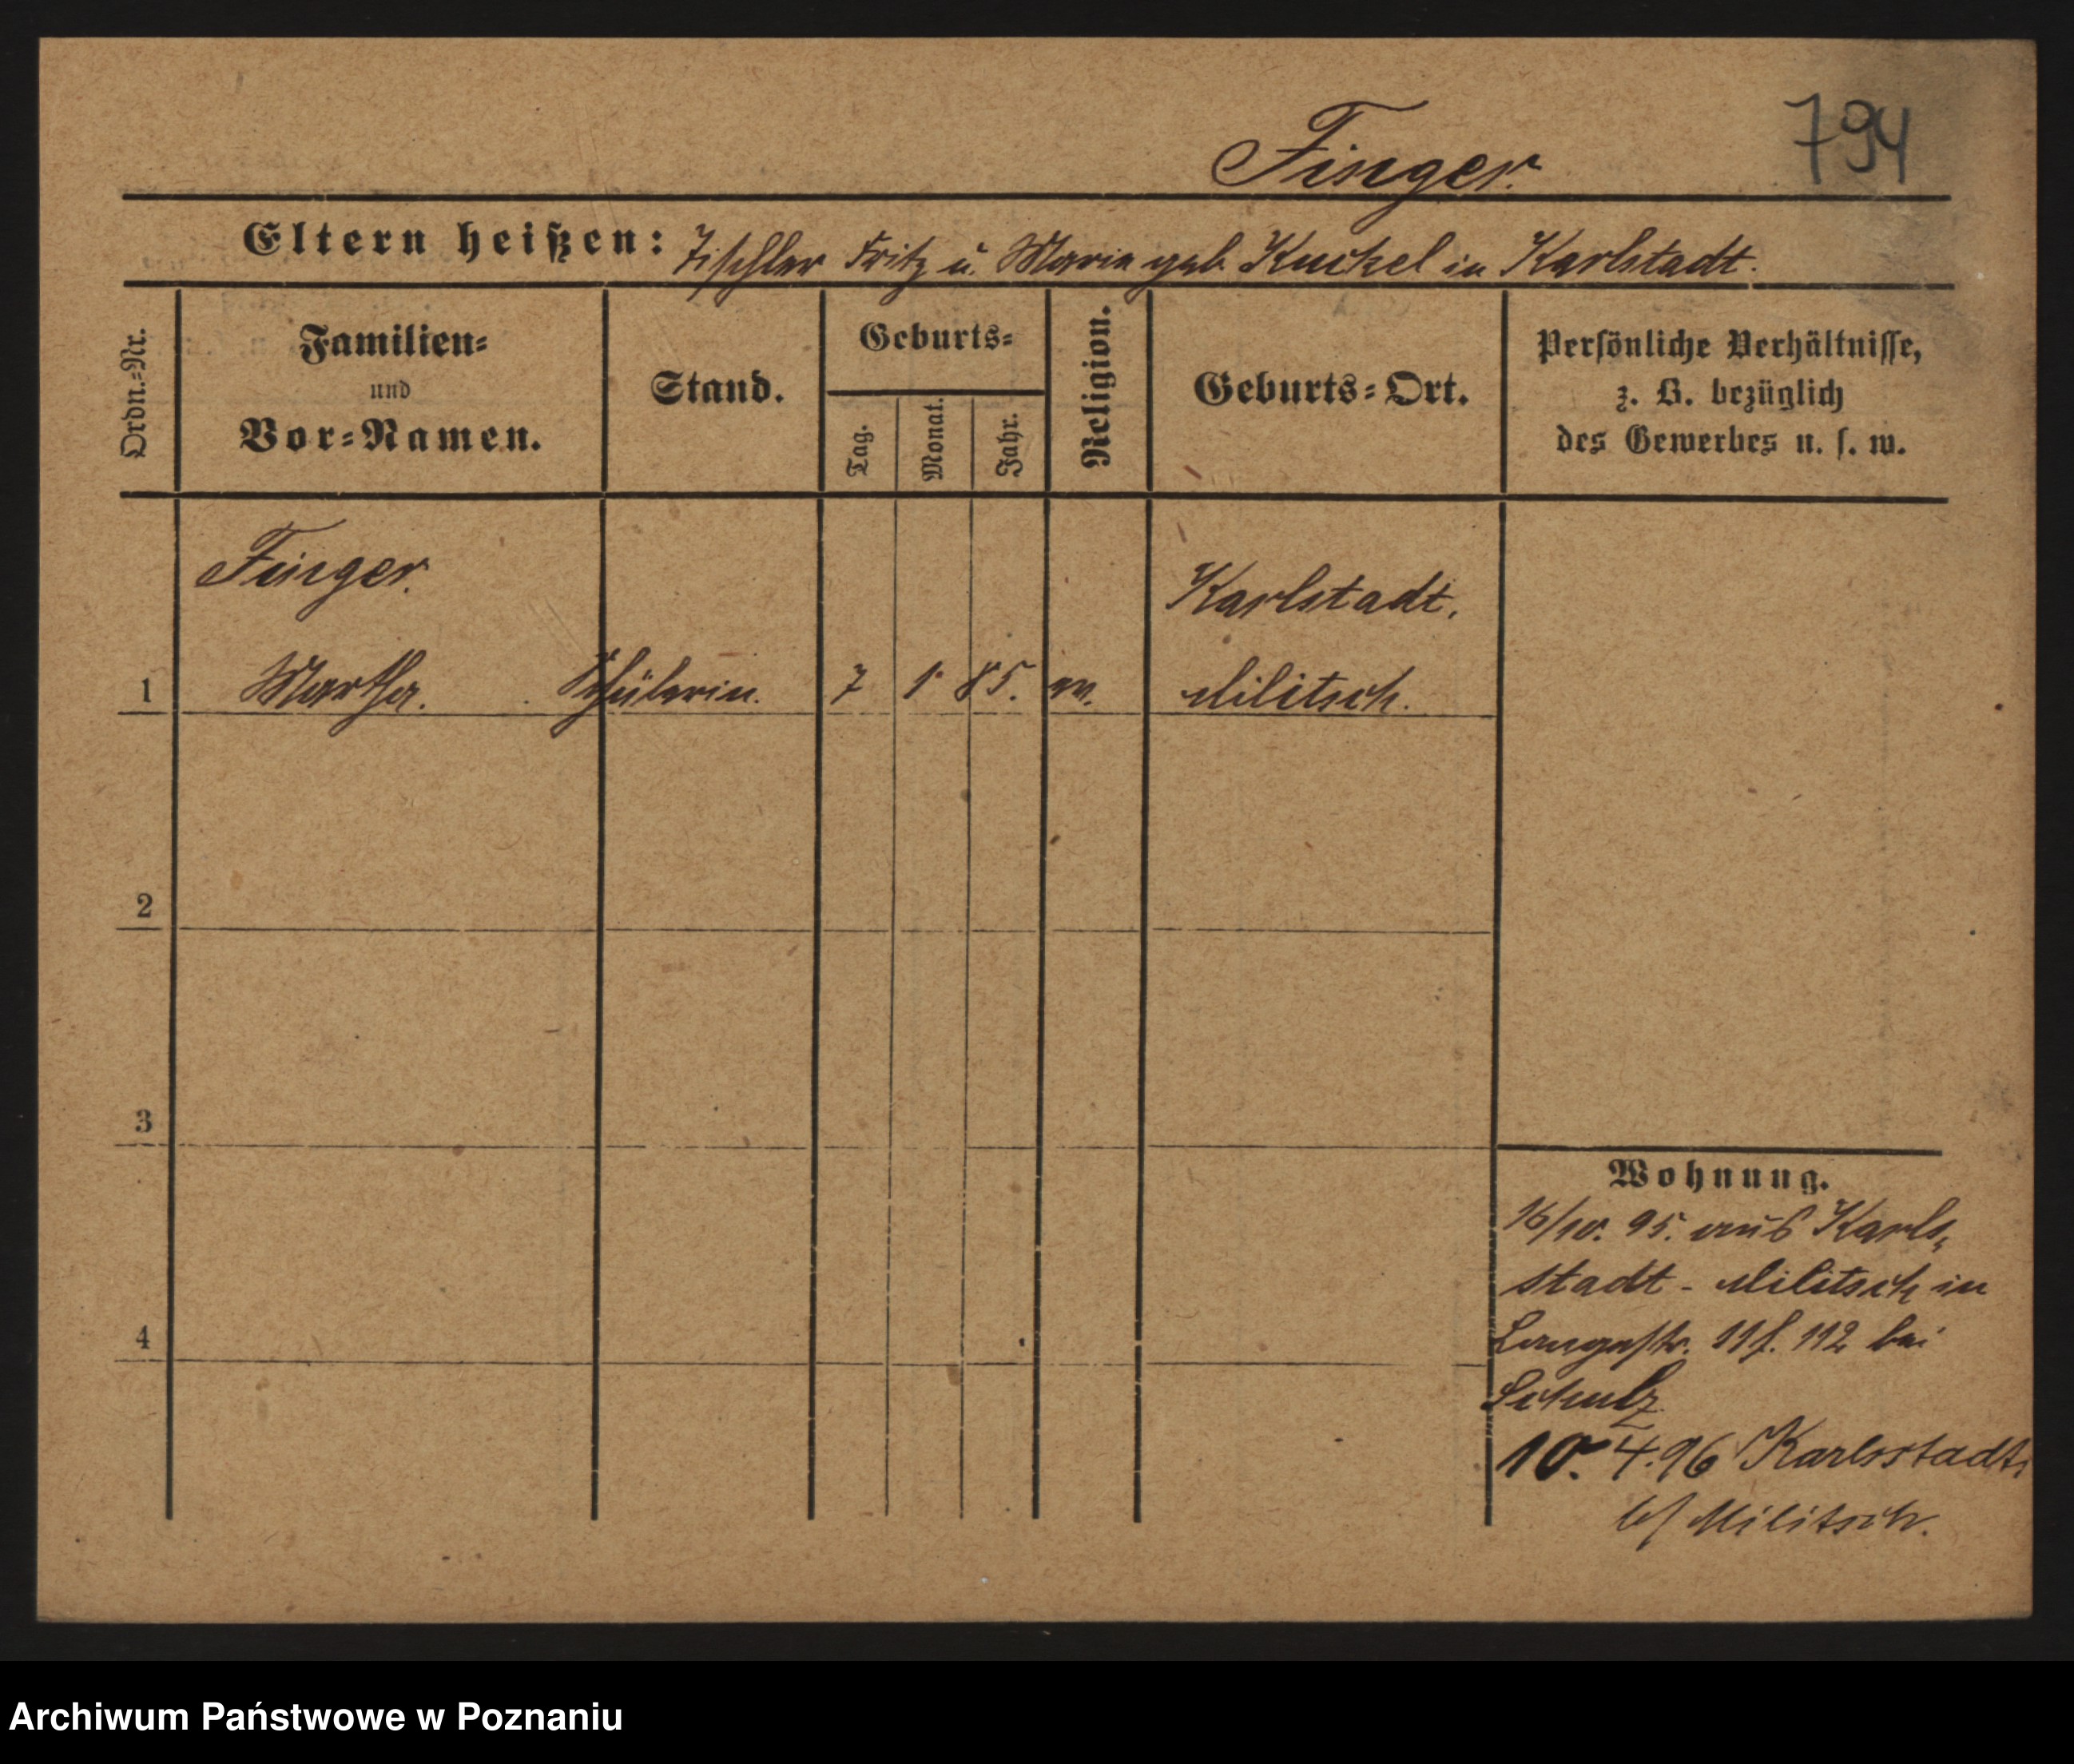 794
Finger.
Eltern heißen: Tischler Fritz u. Maria geb. Kuckel in Karlstadt.
Ordn.=Nr.
Familien=
und
Vor=Namen.
Stand.
Geburts=
Tag.
Monat.
Jahr.
Religion.
Geburts=Ort.
Persönliche Verhältnisse,
z. B. bezüglich
des Gewerbes u. s. w.
Finger.
Karlstadt.
1 Martha. Schülerin. 7 1. 85. Militsch.
2
3
4
Wohnung.
16/10. 95. aus Karls-
stadt - Militsch in
Langestr. 112 bei
Schulz
10. 4. 96 Karlsstadt
b/ Militsch.
Archiwum Państwowe w Poznaniu